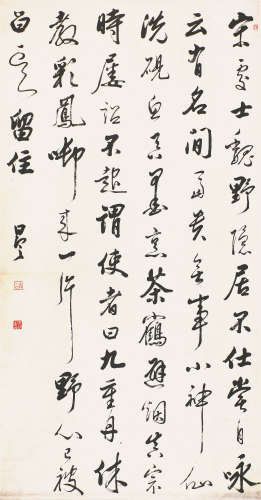 宋處士魏野隱居不仕嘗自咏
云有名閒富貴無事小神仙
洗硯魚吞墨烹茶鶴避烟真宗
時屢詔不起謂使者曰九重丹休
教彩鳳啣來一片野心已被
白雲留住